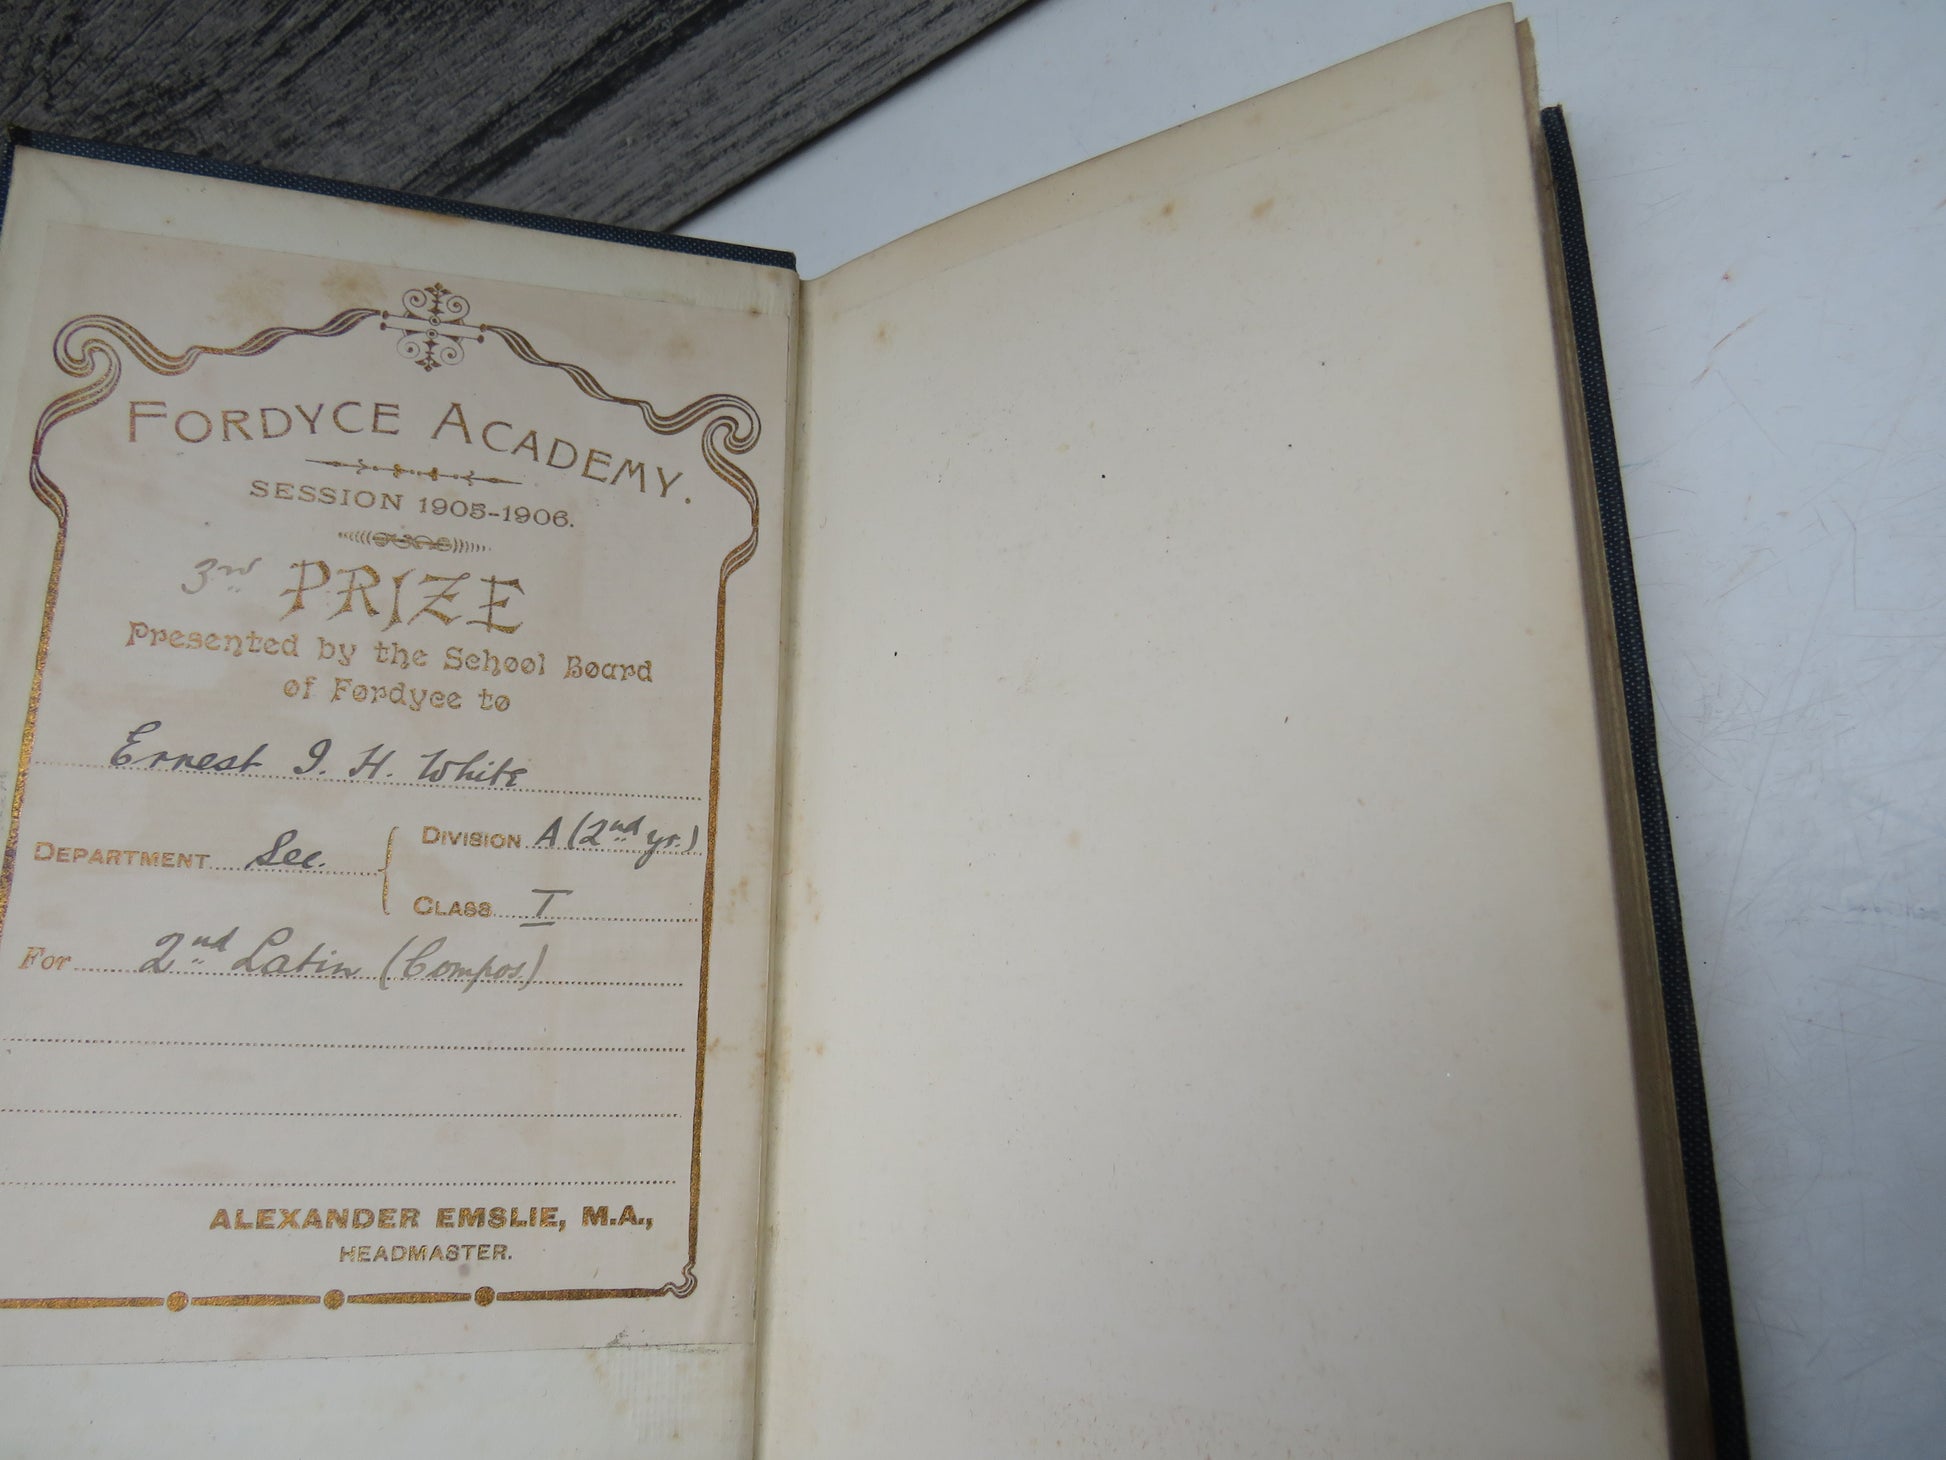 FORDYCE ACADEMY.
SESSION 1905-1906.
3rd PRIZE
Presented by the School Board
of Fordyce to
Ernest I. H. White
DEPARTMENT Sec. DIVISION A (2nd yr.)
CLASS I
For 2nd Latin (Compos)
ALEXANDER EMSLIE, M.A.,
HEADMASTER.